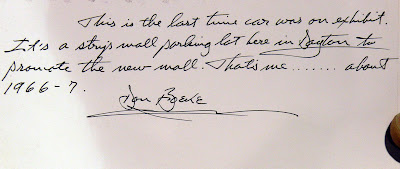 This is the last time car was on exhibit.
It's a strip mall parking lot here in Dayton to
promote the new mall. That's me....... about
1966-7.
Don Boeke